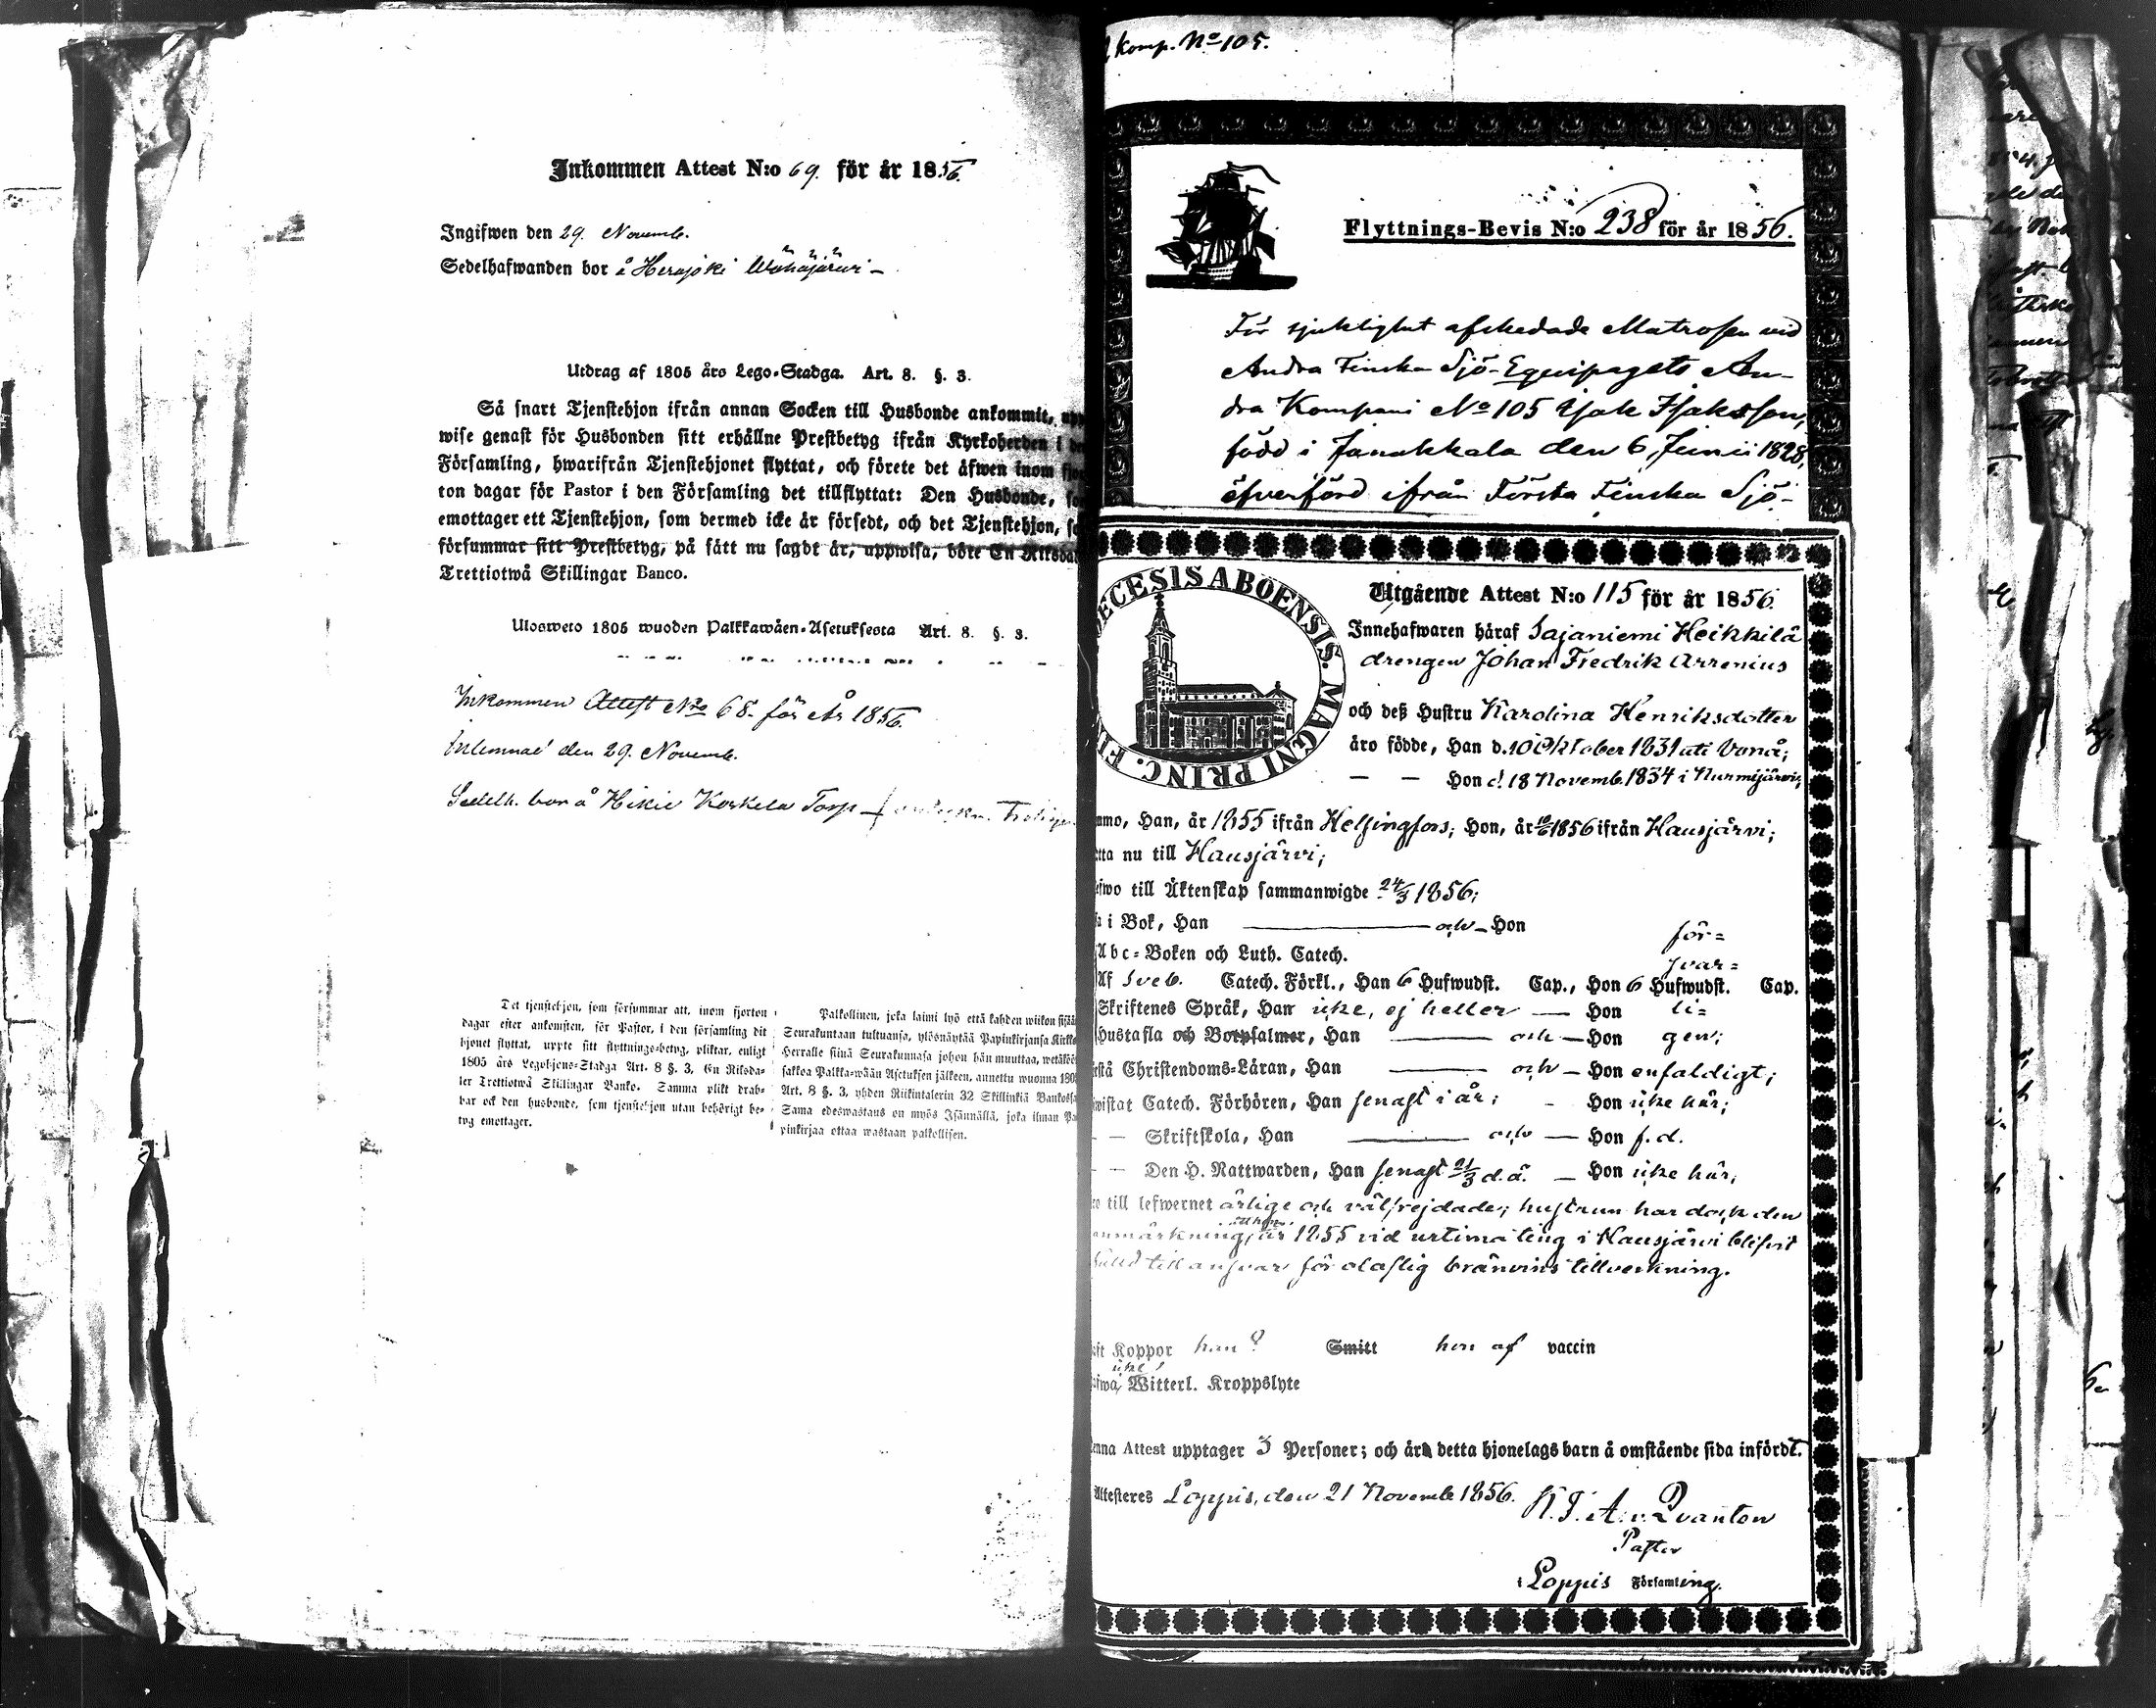 Inkommen Attest N:o 69. för år 1856.
Ingifwen den 29. Novemb.
Sedelhafwanden bor å Herajoki Wähäjärwi –
Utdrag af 1805 års Lego-Stadga. Art. 8. §. 3.
Så snart Tjenstehjon ifrån annan Socken till Husbonde ankommit,
wise genast för Husbonden sitt erhållne Prestbetyg ifrån Kyrkoherden i
Församling, hwarifrån Tjenstehjonet flyttat, och förete det äfwen inom
ton dagar för Pastor i den Församling det tillflyttat: Den Husbonde,
emottager ett Tjenstehjon, som dermed icke är försedt, och det Tjenstehjon,
försummar sitt Prestbetyg, på sätt nu sagdt är, uppwisa, böte En Riksdal
Trettiotwå Skillingar Banco.
Ulosweto 1805 wuoden Palkkawäen-Asetuksesta Art. 8. §. 3.
Inkommen Attest No 68. för År 1856.
Inlemnad den 29. Novemb.
Sedelh. bor å Hikiä Korkela Torp
Det tjenstehjon, som försummar att, inom fjorton
dagar efter ankomsten, för Pastor, i den församling dit
hjonet flyttat, uppte sitt flyttningsbetyg, pliktar, enligt
1805 års Legohjons-Stadga Art. 8 §. 3, En Riksda-
ler Trettiotwå Skillingar Banko. Samma plikt drab-
bar ock den husbonde, som tjenstehjon utan behörigt be-
tyg emottager.
Palkollinen, joka laimi lyö että kahden wiikon sisää
Seurakuntaan tultuansa, ylösnäyttää Papinkirjansa Kirkko
Herralle siinä Seurakunnasa johon hän muuttaa, wetäköön
sakkoa Palkka-wään Asetuksen jälkeen, annettu wuonna 1805
Art. 8 §. 3, yhden Riikintalerin 32 Skillinkiä Bankossa
Sama edeswastaus on myös Isännällä, joka ilman Pa-
pinkirjaa ottaa wastaan palkollisen.
komp. No 105.
Flyttnings-Bevis N:o 238 för år 1856.
För sjuklighet afskedade Matrosen vid
Andra Finska Sjö-Equipagets An-
dra Kompani No 105 Isak Isaksson,
född i Janakkala den 6 Junii 1828,
öfverförd ifrån Första Finska Sjö-
ECESIS ABOENSIS. MAGNI PRINC. FI
Utgående Attest N:o 115 för år 1856.
Innehafwaren häraf Sajaniemi Heikkilä
drengen Johan Fredrik Arrenius
och deß Hustru Karolina Henriksdotter
äro födde, Han d. 10 Oktober 1831 uti Vonå;
– – Hon d. 18 Novemb. 1834 i Nurmijärvi;
mmo, Han, år 1855 ifrån Helsingfors; Hon, år 10/6 1856 ifrån Hausjärvi;
tta nu till Hausjärvi;
fwo till Äktenskap sammanwigde 24/3 1856;
i Bok, Han — och – Hon för=
Abc-Boken och Luth. Catech. svar=
Af Sveb. Catech. Förkl., Han 6 Hufwudst. Cap., Hon 6 Hufwudst. Cap.
Skriftenes Språk, Han icke, ej heller — Hon li=
Hustafla och Botpsalmer, Han — och – Hon gen;
stå Christendoms-Läran, Han — och – Hon enfaldigt;
wistat Catech. Förhören, Han senast i år; - Hon icke här;
– – Skriftskola, Han — och — Hon f.d.
– – Den H. Nattwarden, Han senast 21/3 d.å. – Hon icke här;
till lefwernet ärlige och välfrejdade; hustrun har dock den
anmärkning, att hon år 1855 vid urtima ting i Hausjärvi blifvit
fälld till ansvar för olaflig bränvins tillverkning.
Koppor han ? Smitt hon af vaccin
icke
Witterl. Kroppslyte
enna Attest upptager 3 Personer; och är detta hjonelags barn å omstående sida infördt.
Attesteres Loppis, den 21 Novemb. 1856.
K. F. A. v. Qvanten
Pastor
i Loppis Församling.